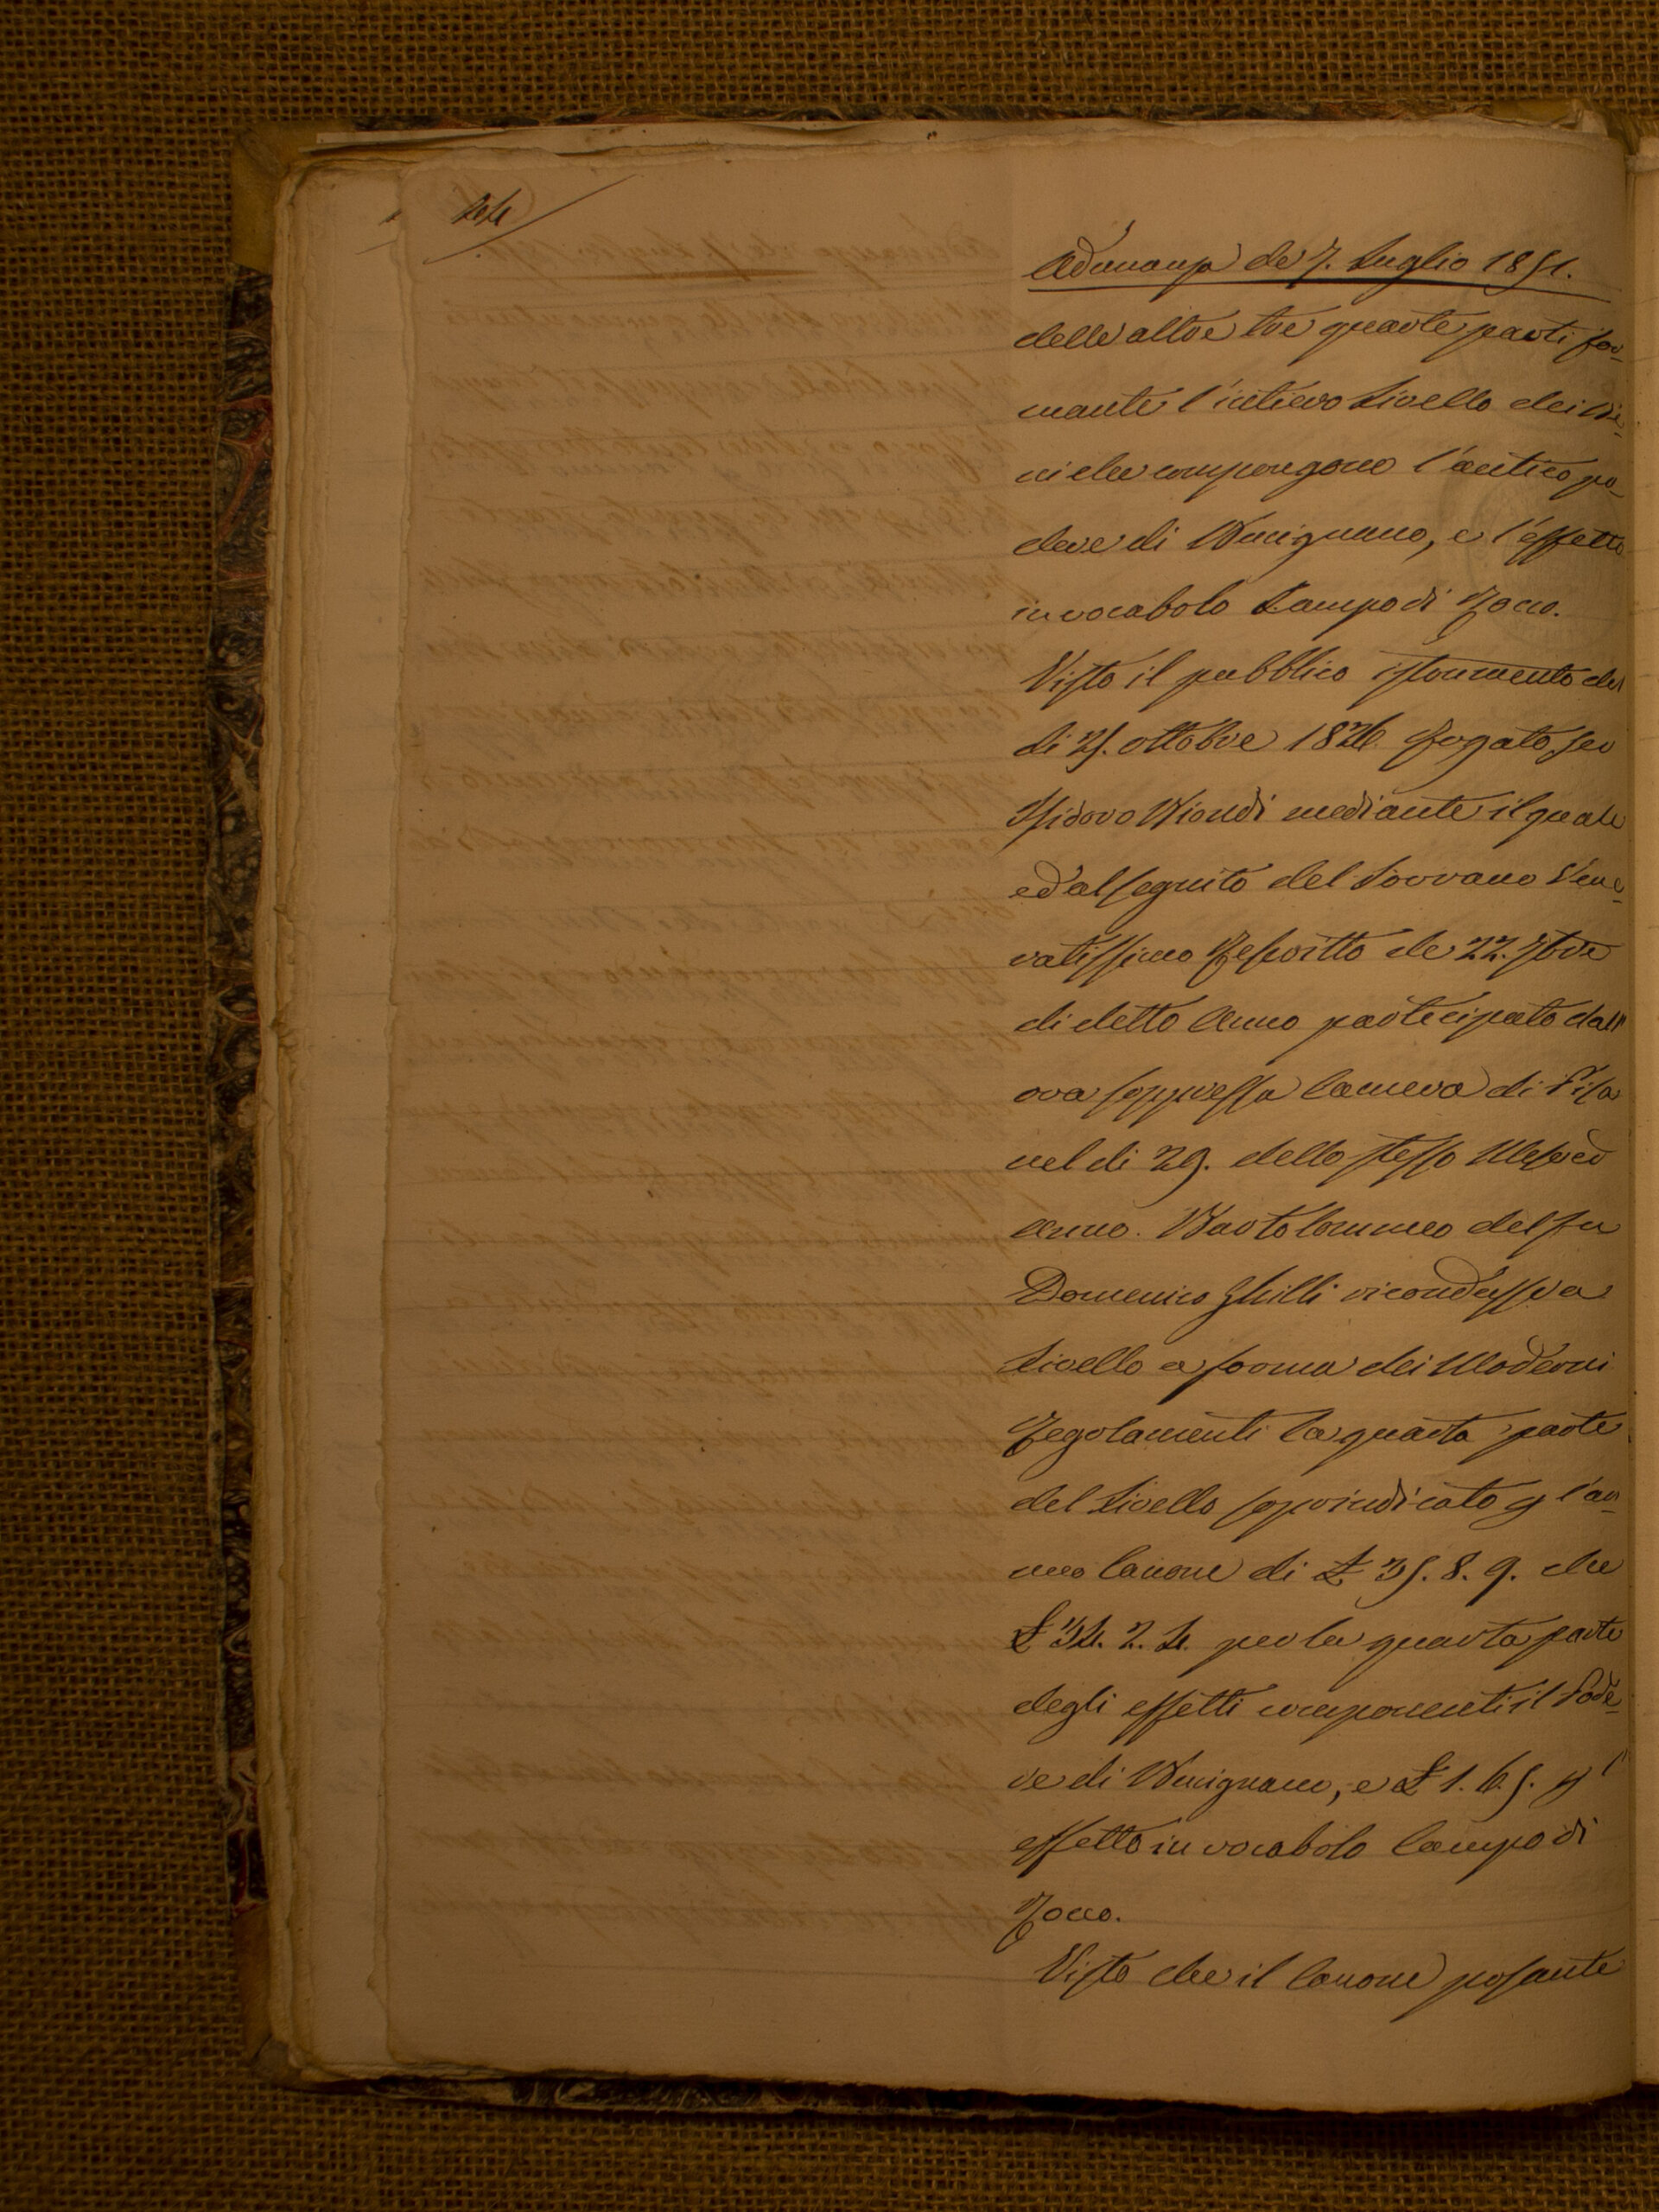 44
Adunanza de 7. Luglio 1851.
delle altre tre quarte parti for-
mante l'intiero Livello dei Be-
ni che compongono l'antico po-
dere di Bucignano, e l'effetto
in vocabolo Campo di Rocco.
Visto il pubblico istrumento del
di 25. ottobre 1826. Rogato Ser
Isidoro Biondi mediante il quale
ed al seguito del Sovrano Vene-
ratissimo Rescritto de 22. 7bre
di detto Anno partecipato dall'
ora soppressa Camera di Pisa
nel di 29. dello stesso Mese ed
Anno. Bartolommeo del fu
Domenico Ghilli ricondusse a
Livello a forma dei Moderni
Regolamenti la quarta parte
del Livello sopraindicato p l'an-
nuo Canone di £ 35. 8. 9. che
£ 34. 2. 4. per la quarta parte
degli effetti componenti il Pode-
re di Bucignano, e £ 1. 6. 5. p l'
effetto in vocabolo Campo di
Rocco.
Visto che il Canone posante